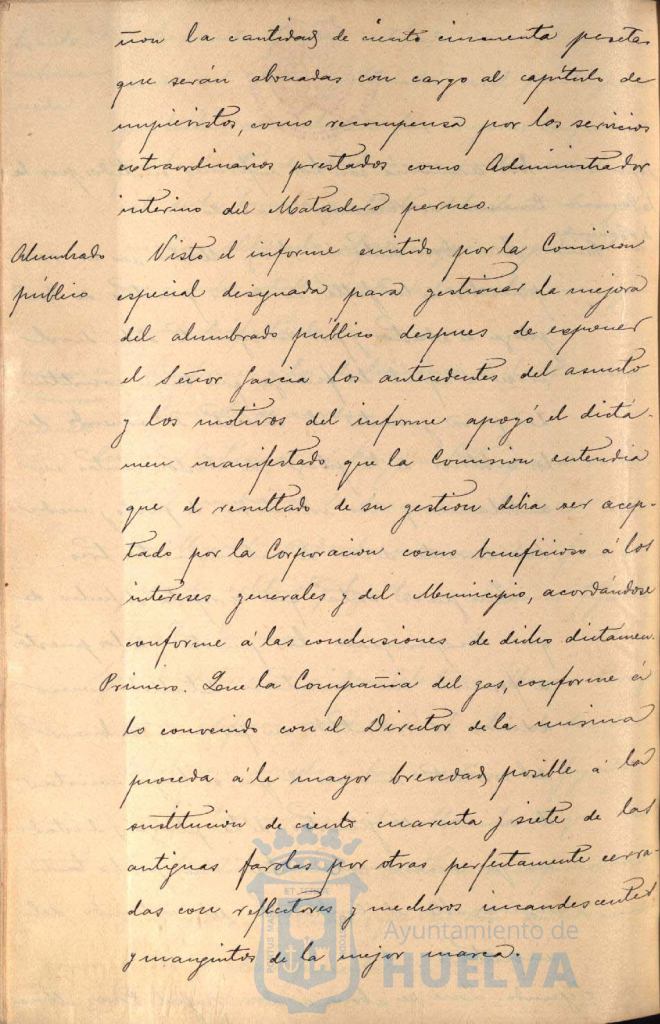 ñon la cantidad de ciento cincuenta pesetas
que serán abonadas con cargo al capítulo de
imprevistos, como recompensa por los servicios
extraordinarios prestados como Administrador
interino del Matadero perneo.
Alumbrado
público
Visto el informe emitido por la Comision
especial designada para gestionar la mejora
del alumbrado público despues de exponer
el Señor Garcia los antecedentes del asunto
y los motivos del informe apoyó el dictá-
men manifestado que la Comision entendia
que el resultado de su gestion debia ser acep-
tado por la Corporacion como beneficioso á los
intereses generales y del Municipio, acordándose
conforme á las conclusiones de dicho dictamen.
Primero. Que la Compañia del gas, conforme á
lo convenido con el Director de la misma
proceda á la mayor brevedad posible á la
sustitucion de ciento cuarenta y siete de las
antiguas farolas por otras perfectamente cerra-
das con reflectores y mecheros incandescentes
y manguitos de la mejor marca.
Ayuntamiento de
HUELVA